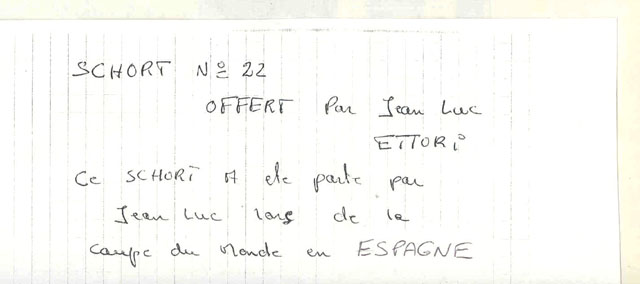 SCHORT Nº 22
OFFERT Par Jean Luc
ETTORi
Ce SCHORT A ete porte par
Jean Luc lors de la
coupe du Monde en ESPAGNE